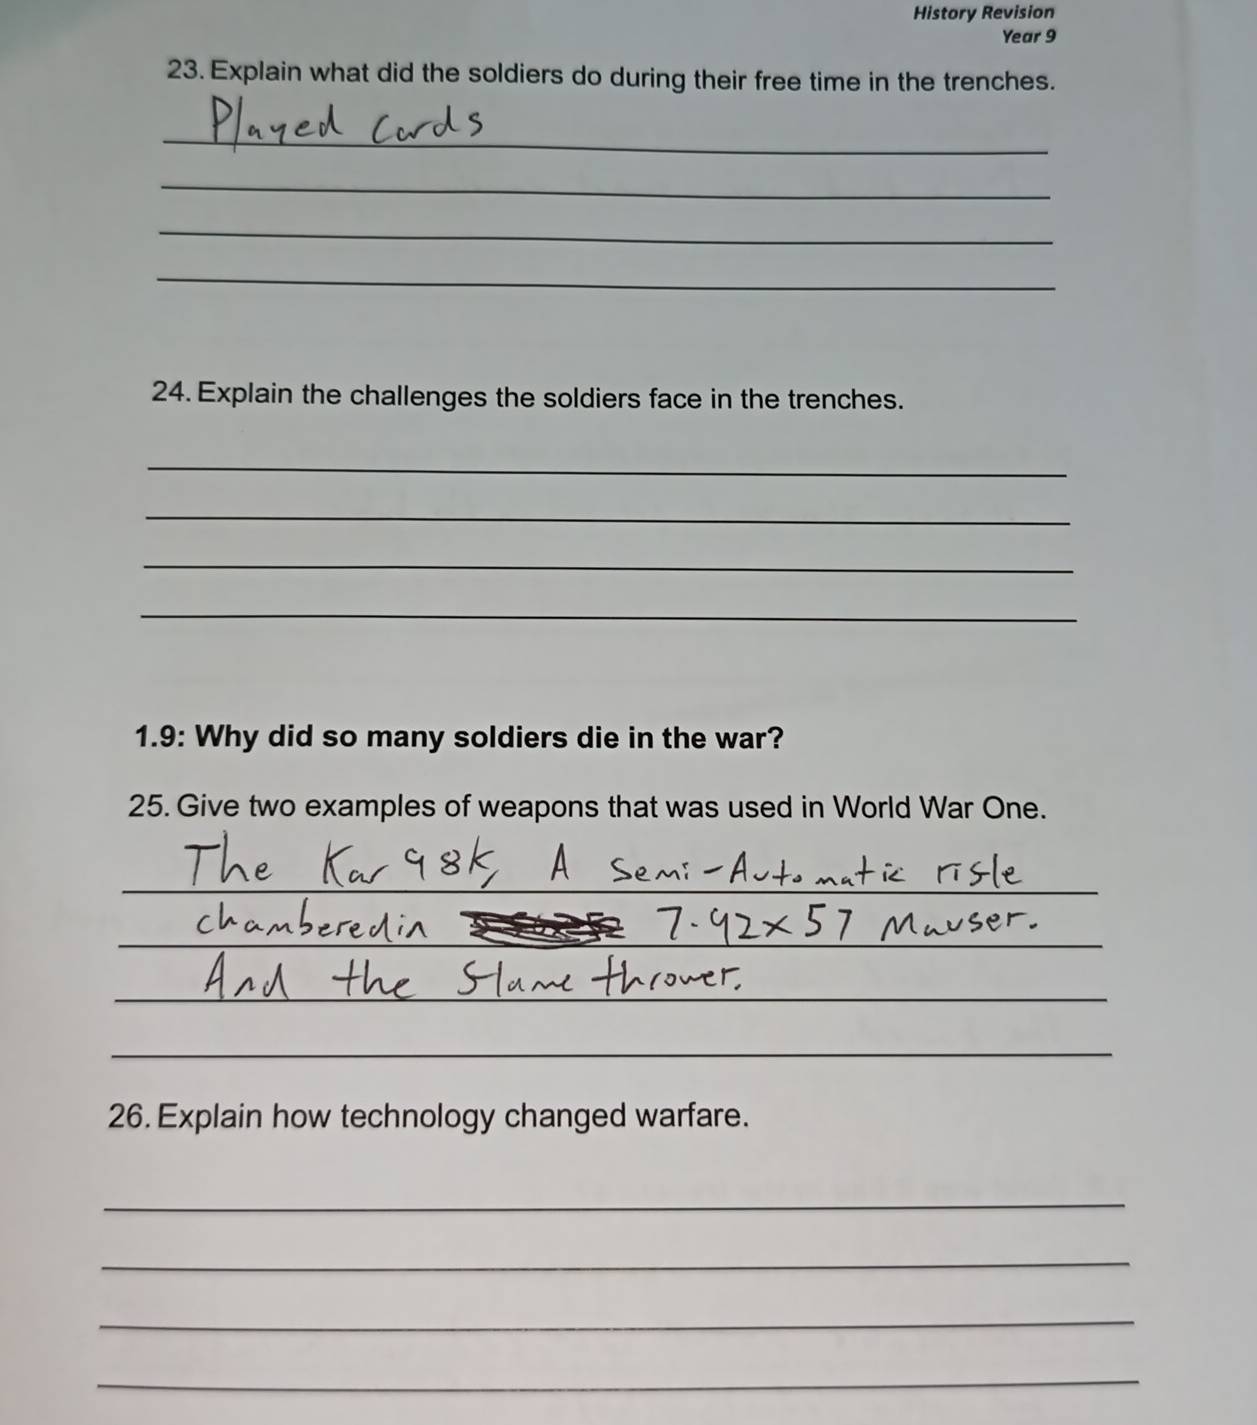 History Revision
Year 9
23. Explain what did the soldiers do during their free time in the trenches.
Played cards
24. Explain the challenges the soldiers face in the trenches.
1.9: Why did so many soldiers die in the war?
25. Give two examples of weapons that was used in World War One.
The Kar98k, A semi-Automatic rifle
chambered in 7.92x57 Mauser.
And the flame thrower.
26. Explain how technology changed warfare.